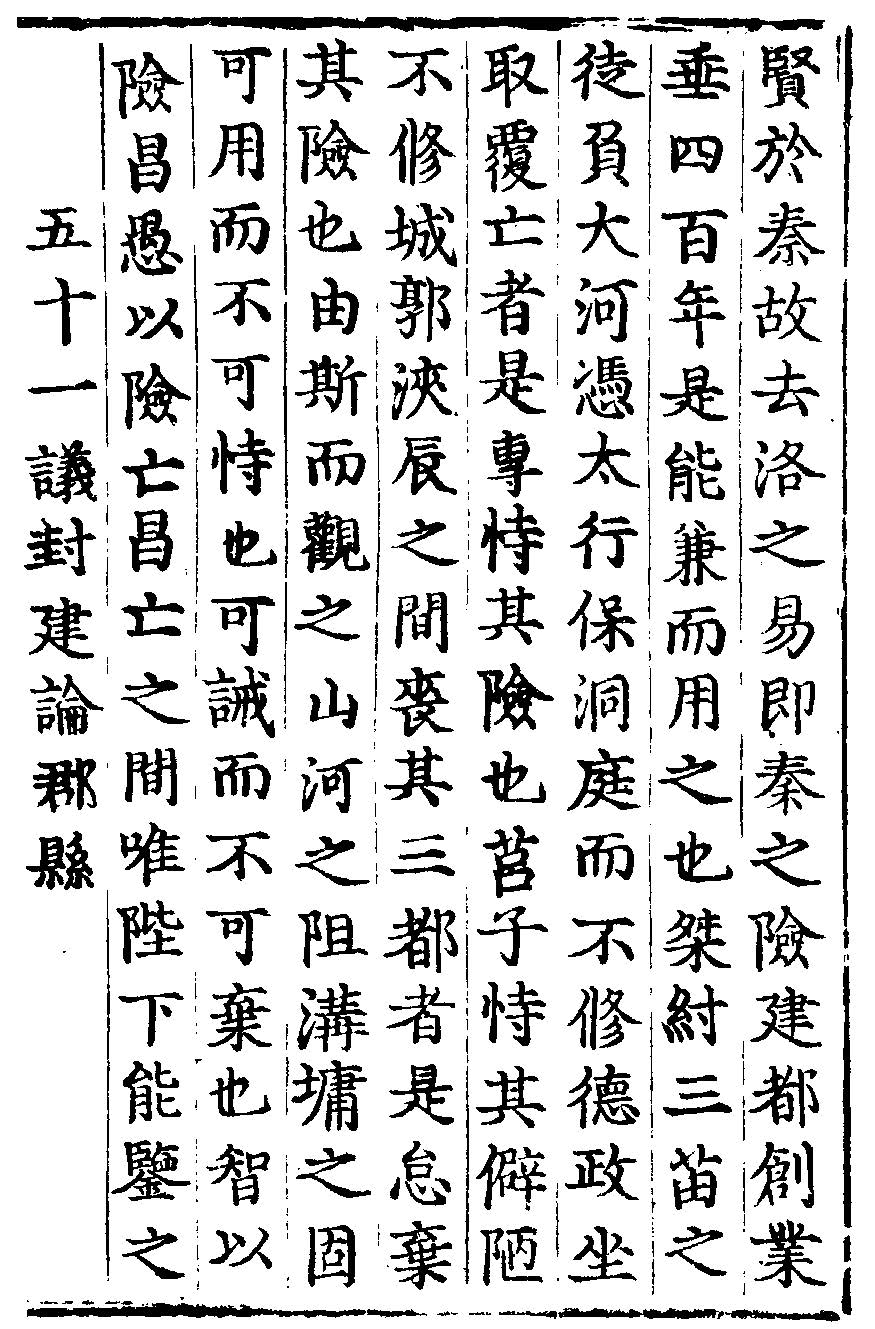 賢於秦故去洛之易即秦之險建都創業
垂四百年是能兼而用之也桀紂三苗之
徒負大河憑太行保洞庭而不修德政坐
取覆亡者是專恃其險也莒子恃其僻陋
不修城郭浹辰之間喪其三都者是怠棄
其險也由斯而觀之山河之阻溝墉之固
可用而不可恃也可誡而不可棄也智以
險昌愚以險亡昌亡之間唯陛下能鑒之
五十一議封建論郡縣